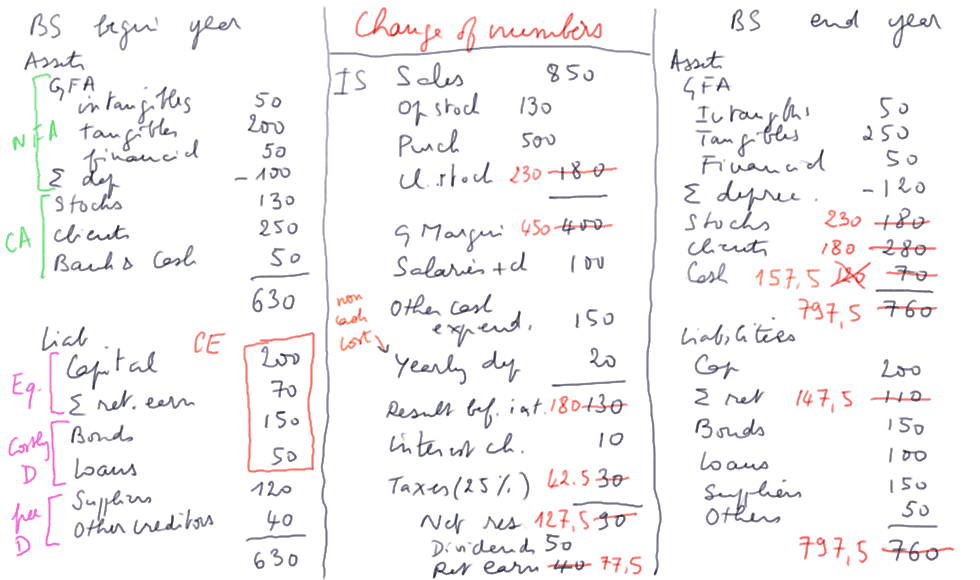 BS begin year
Assets
GFA
intangibles 50
tangibles 200
financial 50
Σ dep -100
NFA
Stocks 130
Clients 250
Bank & Cash 50
CA
630
Liab
CE
Capital 200
Σ ret. earn 70
Eq.
Bonds 150
Loans 50
Costly D
Suppliers 120
Other creditors 40
free D
630
Change of numbers
IS Sales 850
Op stock 130
Purch 500
Cl. stock 230 180
G Margin 450 400
Salaries + cl 100
Other cash
expend. 150
non
cash
cost
Yearly dep 20
Result bef. int. 180 130
Interest ch. 10
Taxes (25%) 42.5 30
Net res 127,5 90
Dividends 50
Ret earn 40 77,5
BS end year
Assets
GFA
Intangibles 50
Tangibles 250
Financial 50
Σ deprec. -120
Stocks 230 180
Clients 180 280
Cash 157,5 120 70
797,5 760
Liabilities
Cap 200
Σ ret 147,5 110
Bonds 150
Loans 100
Suppliers 150
Others 50
797,5 760